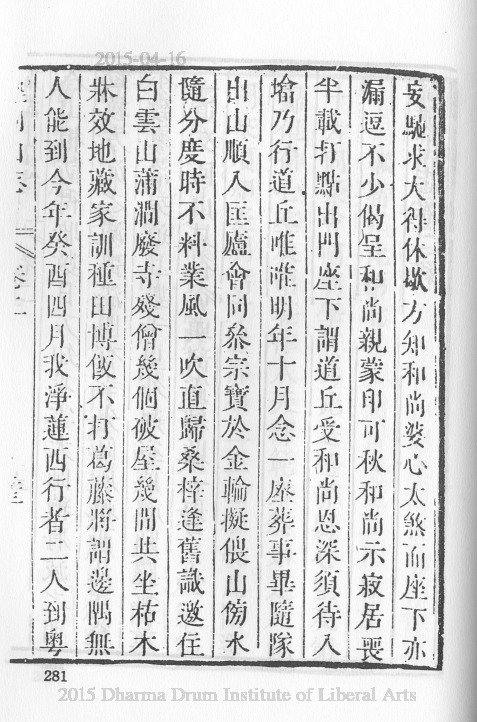 2015-04-16
妄馳求大得休歇方知和尚婆心太煞而座下亦
漏逗不少偈呈和尚親蒙印可秋和尚示寂居喪
半載打點出門座下謂道丘受和尚恩深須待入
塔乃行道丘唯唯明年十月念一座葬事畢隨隊
出山順入匡廬會同叅宗寶於金輪擬偎山傍水
隨分度時不料業風一吹直歸桑梓逢舊識邀住
白雲山蒲澗廢寺殘僧幾個破屋幾間共坐枯木
牀效地藏家訓種田博飯不打葛藤將謂邊隅無
人能到今年癸酉四月我淨蓮西行者二人到粵
281
2015 Dharma Drum Institute of Liberal Arts